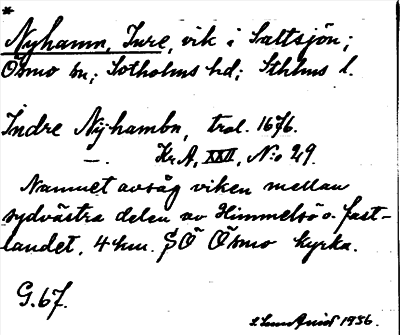 *
Nyhamn, Inre, vik i Saltsjön;
Ösmo sn; Sotholms hd; Sthlms l.
Indre Nÿhambn, trol. 1676.
—. Kr. A, XXII, N:o 29.
Namnet avsåg viken mellan
sydvästra delen av Himmelsö o. fast-
landet, 4 km. SÖ Ösmo kyrka.
G. 67.
1936.